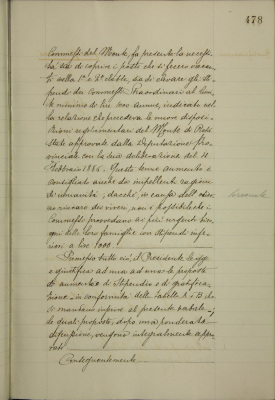 478
Commessi del Monte, fa presente la necessi-
tà di coprire i posti che si fecero vacan-
ti nella 1ª e 2ª classe, sia di elevare gli sti-
pendi dei Commessi straordinari al limi-
te minimo di lire 1000 annue, indicato nel-
la relazione che precedeva le nuove disposi-
zioni regolamentari del Monte di Pietà
state approvate dalla Deputazione pro-
vinciale con la sua deliberazione del 11
Febbraio 1886. Questo tenue aumento è
consigliato anche da impellenti ragioni
di umanità; dacchè, in causa dell'odier-
no rincaro dei viveri, non è possibile che i
Commessi provvedano ai più urgenti biso-
gni delle loro famiglie con stipendi infe-
riori a lire 1000.
Premesso tutto ciò, il Presidente legge
e giustifica ad una ad una le proposte
di aumento di stipendio e di gratifica-
zione in conformità delle tabelle A e B che
si mandano unire al presente verbale,
le quali proposte, dopo una ponderata
discussione, vengono integralmente appro-
vate.
Conseguentemente